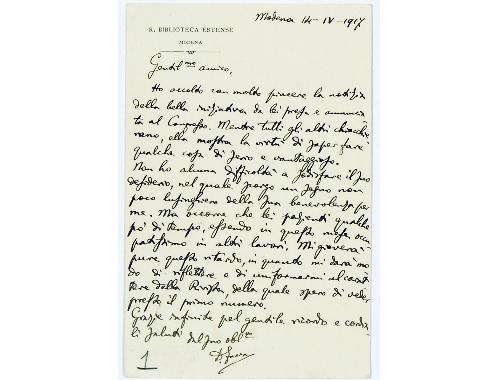 Modena 14-IV-1917
R. BIBLIOTECA ESTENSE
MODENA
Gentil.mo amico,
Ho accolto con molto piacere la notizia
della bella iniziativa da lei presa e annuncia
ta al Congresso. Mentre tutti gli altri chiacchie
rano, ella mostra la virtù di saper fare
qualche cosa di serio e vantaggioso.
Non ho alcuna difficoltà a sodisfare il suo
desiderio, nel quale scorgo un segno non
poco lusinghiero della sua benevolenza per
me. Ma occorre che lei pazienti qualche
po' di tempo, essendo in questo mese occu
patissimo in altri lavori. Mi gioverà
pure questo ritardo, in quanto mi darà mo
do di riflettere e di uniformarmi al carat
tere della Rivista, della quale spero di veder
presto il primo numero.
Grazie infinite pel gentile ricordo e cordia
li saluti dal suo obb.mo
D. Fava
1